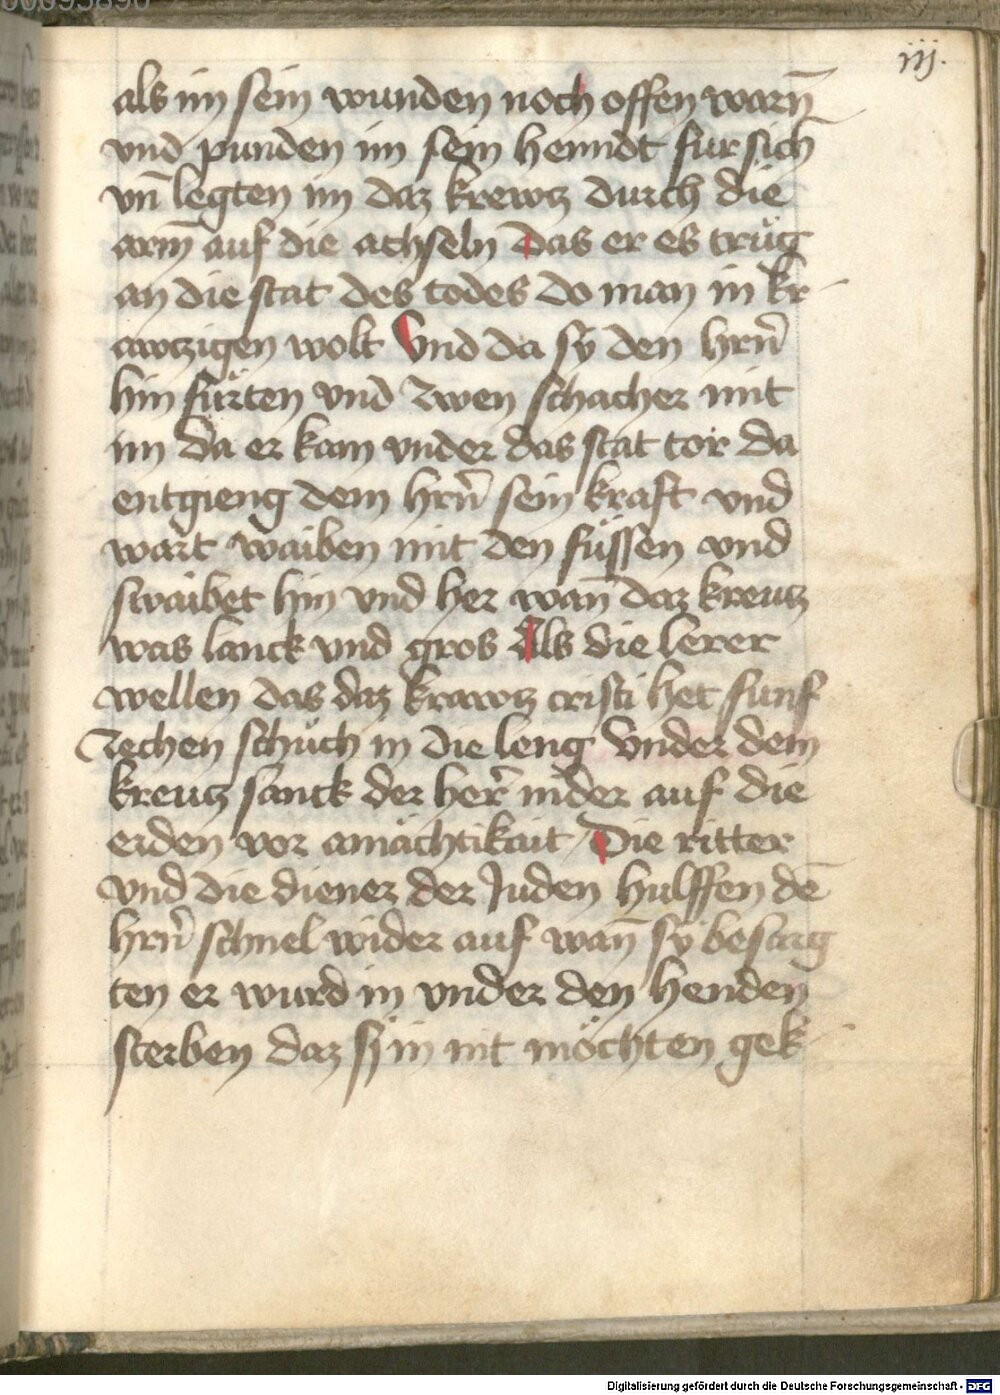 iij.
als im sein wunden noch offen warn̄
vnd punden im sein henndt fur sich
vn̄ legten im daz krewtz durch die
arm̄ auf die achseln Das er es trůg
an die stat des todes do man in kr-
awtzigen wolt Vnd da sy den hrn̄
hin fürten vnd zwen schacher mit
im da er kam vnder das stat tor da
entgieng dem hrn̄ sein kraft vnd
wart waiben mit den füssen vnd
swaibet hin vnd her wan̄ daz kreutz
was lanck vnd gros Als die lerer
wellen das daz krawtz cristi het funf
zechen schüch in die leng Vnder dem
kreutz sanck der her̄ nider auf die
erden vor amächtikait Die ritter
vnd die diener der Juden hulffen dē
hrn̄ schnel wider auf wan̄ sy besarg
ten er wurd in vnder den henden
sterben daz sy in nit möchten gek-
Digitalisierung gefördert durch die Deutsche Forschungsgemeinschaft - DFG